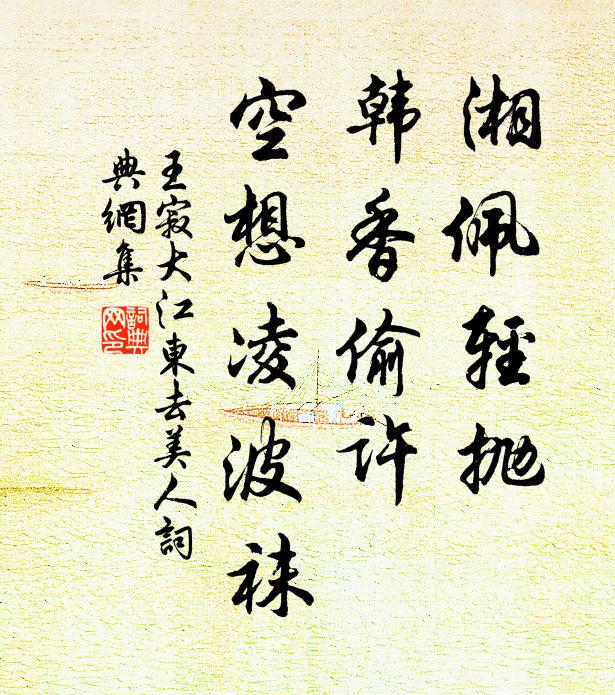 湘佩輕拋
韩香偷许
空想凌波袜
王寂大江東去美人詞
典網集
詞典
网印